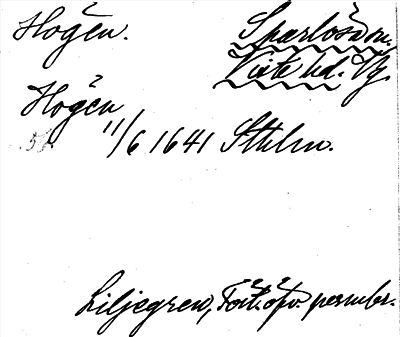 Hogen. Sparlösa sn.
Viste hd. Vg.
Hogen
11/6 1641 Sthlm.
Liljegren, Fört. öfv. permbr.